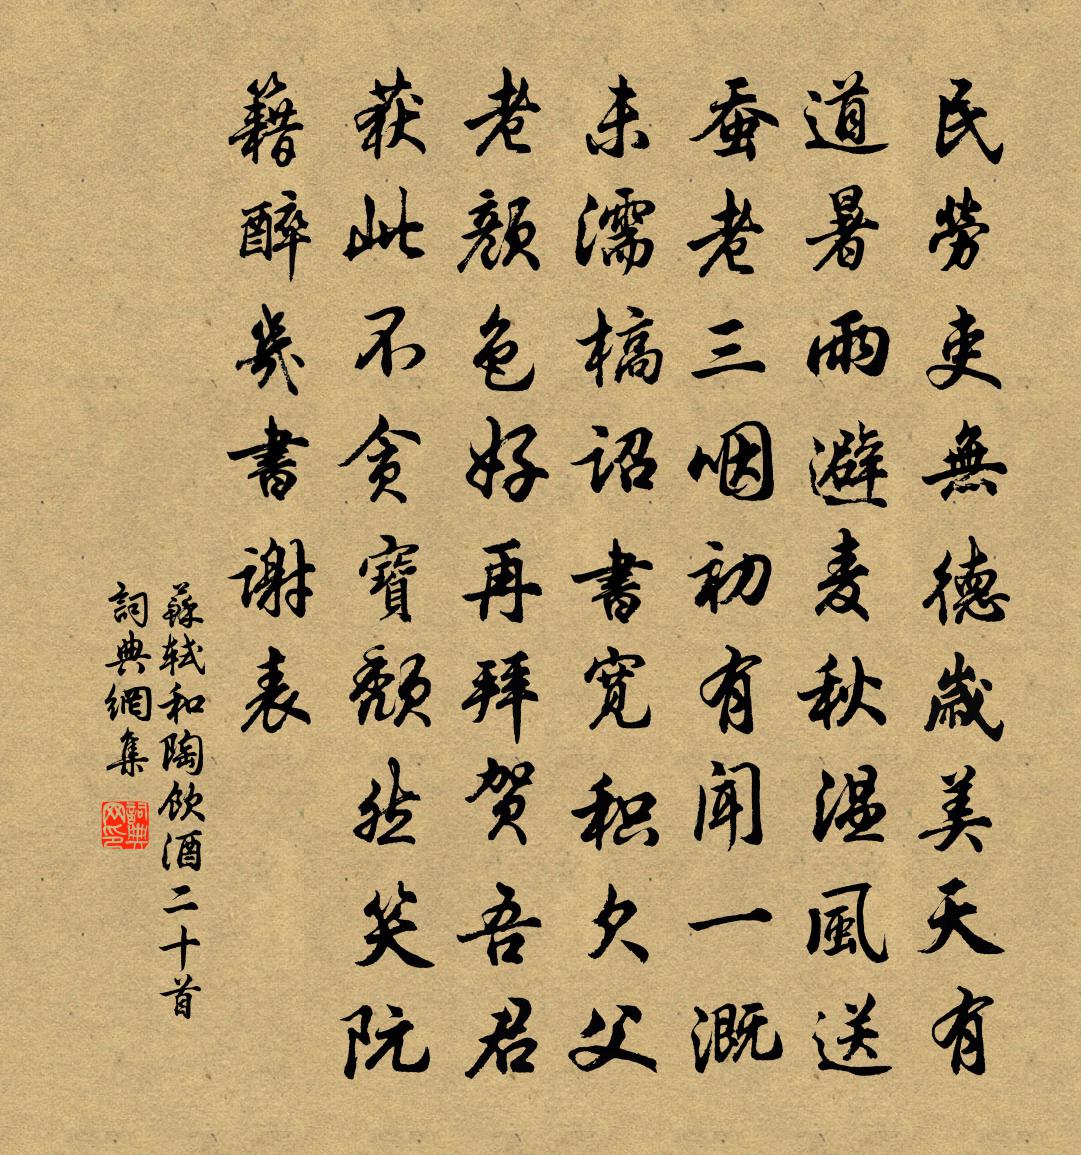 民勞吏無德歲美天有
道暑雨避麦秋温風送
蚕老三咽初有聞一溉
未濡槁詔書寬積欠父
老顏色好再拜贺吾君
获此不贪寶頽然笑阮
籍醉幾書謝表
蘇轼和陶飲酒二十首
詞典網集
詞典网印